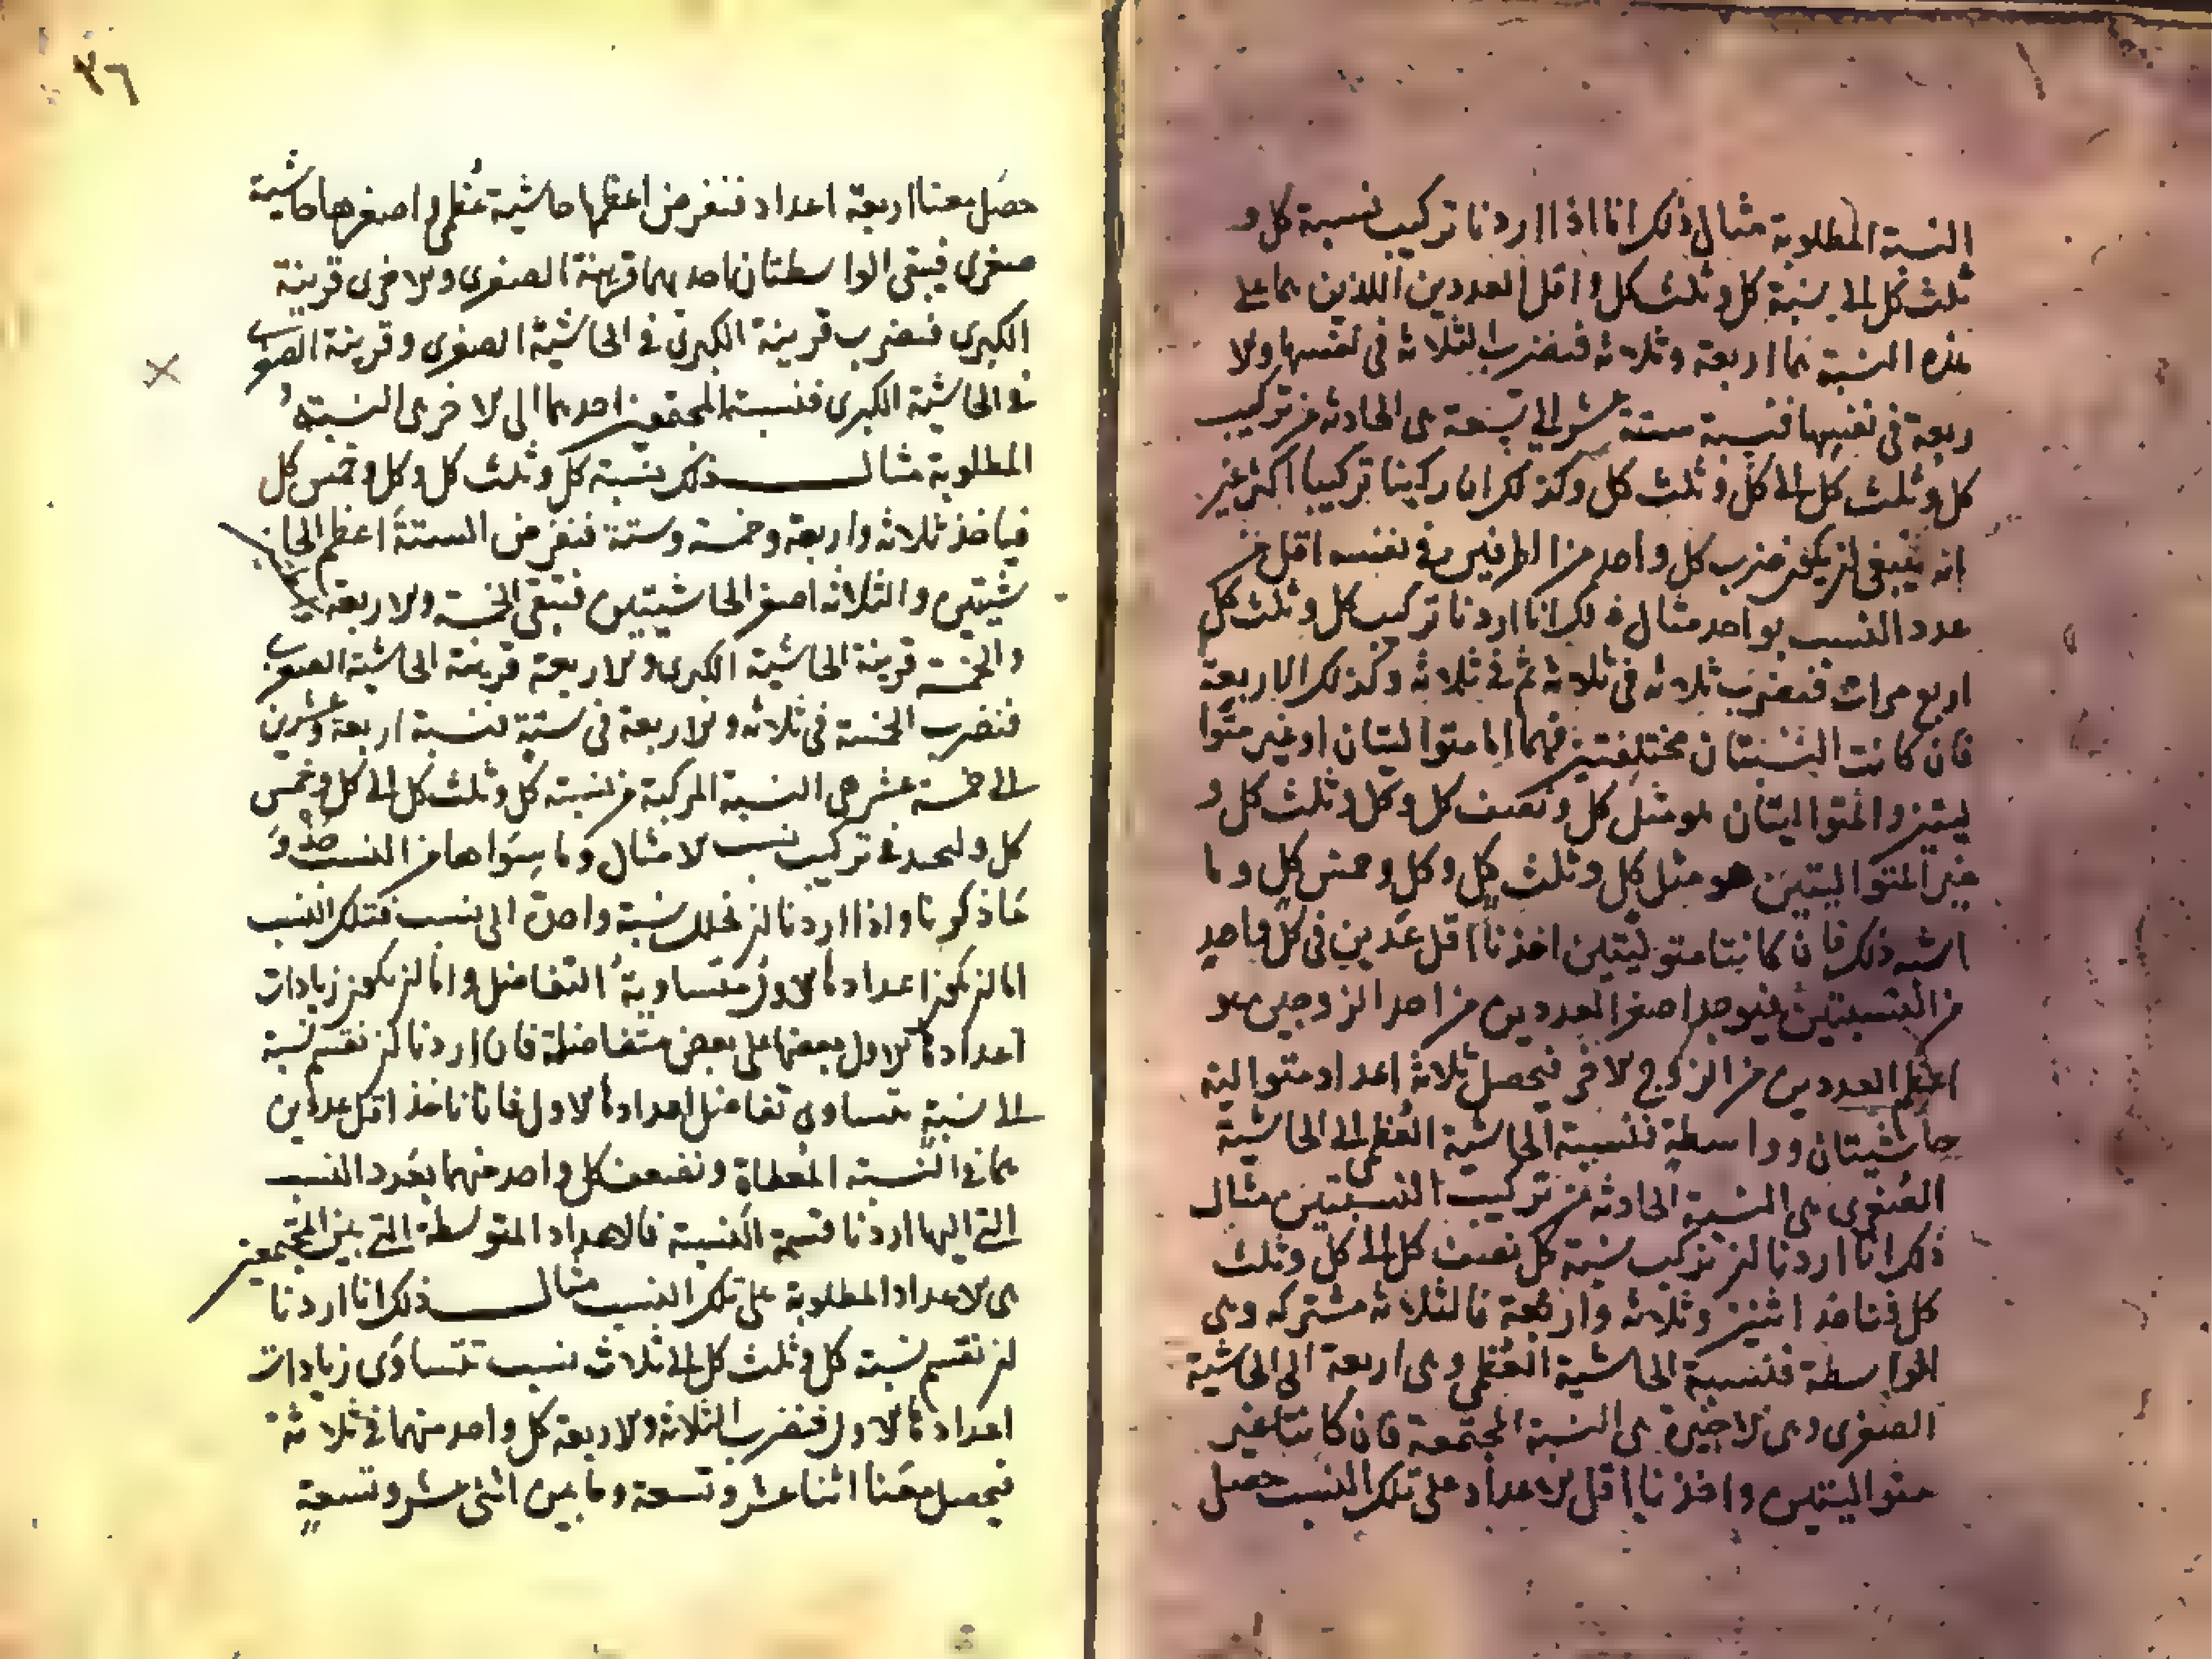 النسبة المطلوبة مثال ذلك انا اذا اردنا تركيب نسبة كل و
ثلث كل الى نسبة كل وثلث كل واقل العددين اللذين هما على
هذه النسبة هما اربعة وثلاثة فنضرب الثلاثة في نفسها والا
ربعة في نفسها فنسبة ستة عشر الى تسعة هى الحادثة من تركيب
كل وثلث كل الى كل وثلث كل وكذلك ان ركبنا تركيبا اكثر غير
انه ينبغى ان يكون ضرب كل واحد من الطرفين في نفسه اقل من
عدد النسب بواحد مثال ذلك انا اردنا تركيب كل وثلث كل
اربع مرات فنضرب ثلاثة في ثلاثة ثم في ثلاثة وكذلك الاربعة
فان كانت النسبتان مختلفتين فهما اما متواليتان او غير متوا
ليتين والمتواليتان هو مثل كل ونصف كل وكل وثلث كل و
غير المتواليتين هو مثل كل وثلث كل وكل وخمس كل وما
اشبه ذلك فان كانتا متوليتين اخذنا اقل عددين في كل واحد
من النسبتين فيوجد اصغر العددين من احد الزوجين هو
اعظم العددين من الزوج الاخر فيحصل ثلاثة اعداد متوالية
حاشيتان وواسطة فنسبة الحاشية العظمى الى الحاشية
الصغرى هى النسبة الحادثة من تركيب النسبتين مثال
ذلك انا اردنا ان نركب نسبة كل نصف كل الى كل وثلث
كل فناخذ اثنين وثلاثة واربعة فالثلاثة مشتركة وهى
الواسطة فنسبة الحاشية العظمى وهى اربعة الى الحاشية
الصغرى وهى الاخيرة هى النسبة المجتمعة فان كانتا غير
متواليتين واخذنا اقل الاعداد على تلك النسب حصل
٣٦
حصل معنا اربعة اعداد فنفرض اعظمها حاشية عظمى واصغرها حاشية
صغرى فيبقى الواسطتان احدهما قرينة الصغرى والاخرى قرينة
الكبرى فنضرب قرينة الكبرى في الحاشية الصغرى وقرينة الصغرى
في الحاشية الكبرى فنسبة المجتمعين احدهما الى الاخرى النسبة
المطلوبة مثال ذلك نسبة كل وثلث كل وكل وخمس كل
فياخذ ثلاثة واربعة وخمسة وستة فنفرض الستة اعظم الحا
شيتين والثلاثة اصغر الحاشيتين فتبقى الخمسة والاربعة
والخمسة قرينة الحاشية الكبرى والاربعة قرينة الحاشية الصغرى
فنضرب الخمسة في ثلاثة والاربعة في ستة فنسبة اربعة وعشرين
الى خمسة عشر هى النسبة المركبة من نسبة كل وثلث كل الى كل وخمس
كل وليحد في تركيب نسب الامثال وما سواها من النسب حذو
ما ذكرنا واذا اردنا ان نحلل نسبة واحدة الى نسب فتلك النسب
اما ان تكون اعدادها الاول متساوية التفاضل واما ان تكون زيادات
اعدادها الاول بعضها على بعض متفاضلة فان اردنا ان نقسم نسبة
الى نسبة متساوى تفاضل اعدادها الاول فانا ناخذ اقل عددين
هما في النسبة المعطاة ونضعف كل واحد منهما بعدد النسب
التى اليها اردنا قسمة النسبة فالاعداد المتوسطة التى بين المجتمعين
هى الاعداد المطلوبة على تلك النسب مثال ذلك انا اردنا
ان نقسم نسبة كل وثلث كل الى ثلاث نسب تتساوى زيادات
اعدادها الاول فنضرب الثلاثة والاربعة كل واحد منهما في ثلاثة
فيحصل معنا اثنا عشر وتسعة وما بين اثنى عشر وتسعة